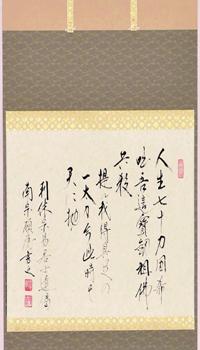 人生七十力囲希
咄吾這寶剣祖佛
共殺
提る我得具足の
一太刀今此時そ
天ニ抛
利休宗易居士遺偈
南宗 書之